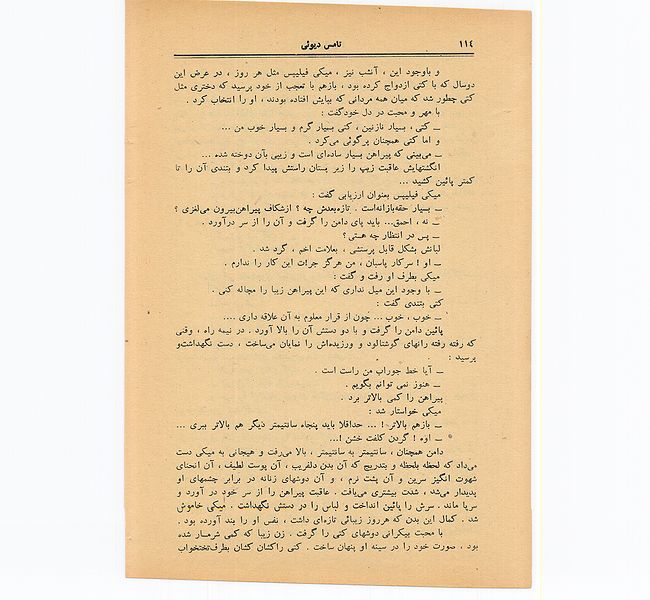 ۱۱٤
تامس دیوئی
و باوجود این ، آنشب نیز ، میکی فیلیپس مثل هر روز ، در عرض این
دوسال که با کتی ازدواج کرده بود ، بازهم با تعجب از خود پرسید که دختری مثل
کتی چطور شد که میان همه مردانی که بپایش افتاده بودند ، او را انتخاب کرد .
با مهر و محبت در دل خودگفت :
ـ کتی ، بسیار نازنین ، کتی بسیار گرم و بسیار خوب من ...
و اما کتی همچنان پرگوئی می‌کرد .
ـ می‌بینی که پیراهن بسیار ساده‌ای است و زیپی بآن دوخته شده ...
انگشتهایش عاقبت زیپ را زیر پستان راستش پیدا کرد و بتندی آن را تا
کمتر پائین کشید ...
میکی فیلیپس بعنوان ارزیابی گفت :
ـ بسیار حقه‌بازانه‌است . تازه‌بعدش چه ؟ ازشکاف پیراهن‌بیرون می‌لغزی ؟
ـ نه ، احمق... باید پای دامن را گرفت و آن را از سر درآورد .
ـ پس در انتظار چه هستی ؟
لبانش بشکل قابل پرستشی ، بعلامت اخم ، گرد شد .
ـ او ! سرکار پاسبان ، من هرگز جرات این کار را ندارم .
میکی بطرف او رفت و گفت :
ـ با وجود این میل نداری که این پیراهن زیبا را مچاله کنی .
کتی بتندی گفت :
ـ خوب ، خوب ... چون از قرار معلوم به آن علاقه داری ....
پائین دامن را گرفت و با دو دستش آن را بالا آورد . در نیمه راه ، وقتی
که رفته رفته رانهای گوشتالود و ورزیده‌اش را نمایان می‌ساخت ، دست نگهداشت‌و
پرسید :
ـ آیا خط جوراب من راست است .
ـ هنوز نمی توانم بگویم .
پیراهن را کمی بالاتر برد .
میکی خواستار شد :
ـ بازهم بالاتر ! ... حداقلا باید پنجاه سانتیمتر دیگر هم بالاتر ببری ...
ـ اوه ! گردن کلفت خشن !...
دامن همچنان ، سانتیمتر به سانتیمتر ، بالا می‌رفت و هیجانی به میکی دست
می‌داد که لحظه بلحظه و بتدریج که آن بدن دلفریب ، آن پوست لطیف ، آن انحنای
شهوت انگیز سرین و آن پشت نرم ، و آن دوشهای زنانه در برابر چشمهای او
پدیدار می‌شد ، شدت بیشتری می‌یافت . عاقبت پیراهن را از سر خود در آورد و
سرپا ماند . سرش را پائین انداخت و لباس را در دستش نگهداشت . میکی خاموش
شد . کمال این بدن که هرروز زیبائی تازه‌ای داشت ، نفس او را بند آورده بود .
با محبت بیکرانی دوشهای کتی را گرفت . زن زیبا که کمی شرمسار شده
بود ، صورت خود را در سینه او پنهان ساخت . کتی راکشان کشان بطرف‌تختخواب